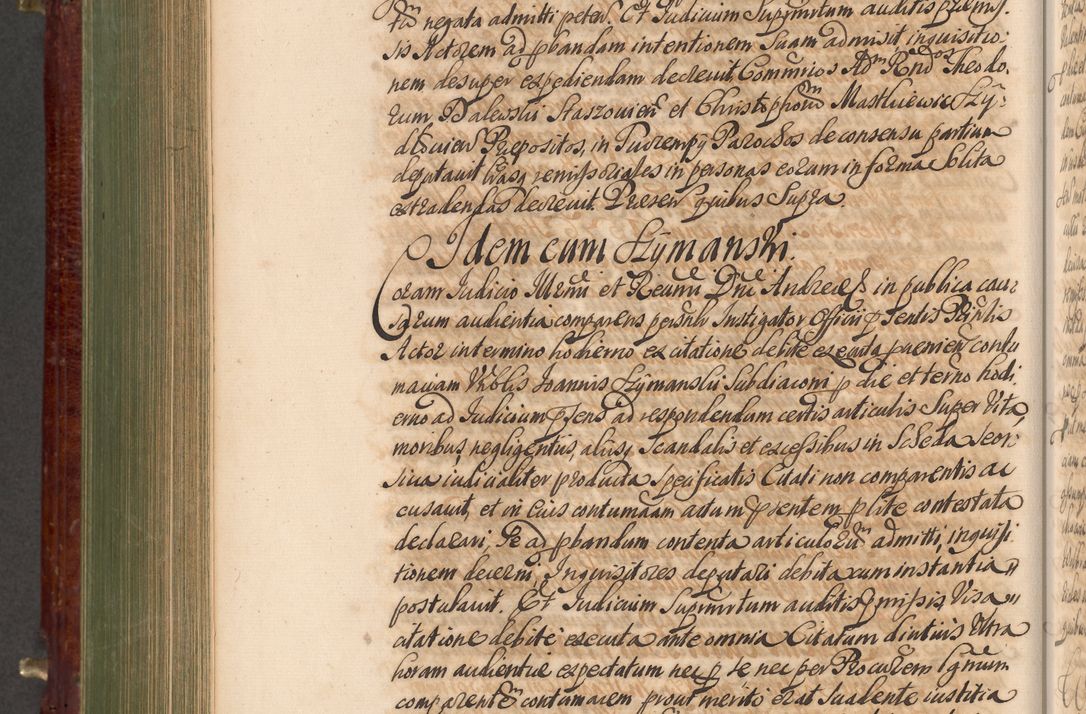 tũ negata admitti petev̄. Et Judicium Suprãscrtum auditis præmis,,
sis Actorem ad pbandam intentionem suam admisit inquisitio,,
nem desuper expediendam decrevit, Commrios Adm Rñdos Theodo,,
rum Dalewski Staszovien̄ et Christophorũ Mastkiewic Szy,,
dlovien̄ Præpositos, in Parochos de consensu partium
deputavit lrasq remissoriales in personas eorum in forma solita
extradendas decrevit. Præsen̄ quibus Supra
Idem cum Szymanski.
Coram Judicio Illmi et Reverñdi Dñi Andreæ in publica cau,,
sarum audientia comparens personlr Instigator Officii psentis Pñplis
Actor in termino hodierno ex citatione debite executa præmen̄ contu
maciam Vñblis Joannis Szymanskii Subdiaconi p die et terno hodi,,
erno ad Judicium psens ad respondendum certis articulis Super Vita,
moribus, negligentiis, aliisq scandalis et excessibus in Scheda seor,,
siva judicialiter producta specificatis Citati non comparentis ac
cusavit, et in eius contumaam actum psentem p lite contestata
declarari, Se ad pbandum contenta articulorũ admitti, inquisi
tionem decerni, Inquisitores deputari debita cum instantia
postulavit. Et Judicium Suprãscrtum auditis pmissis Visa
citatione debite executa ante omnia Citatum diutius Ultra
horam audientiæ expectatum nec p se nec per Procurem Lgmum
comparentẽ contumacem prout meriti erat Suadente iustitia